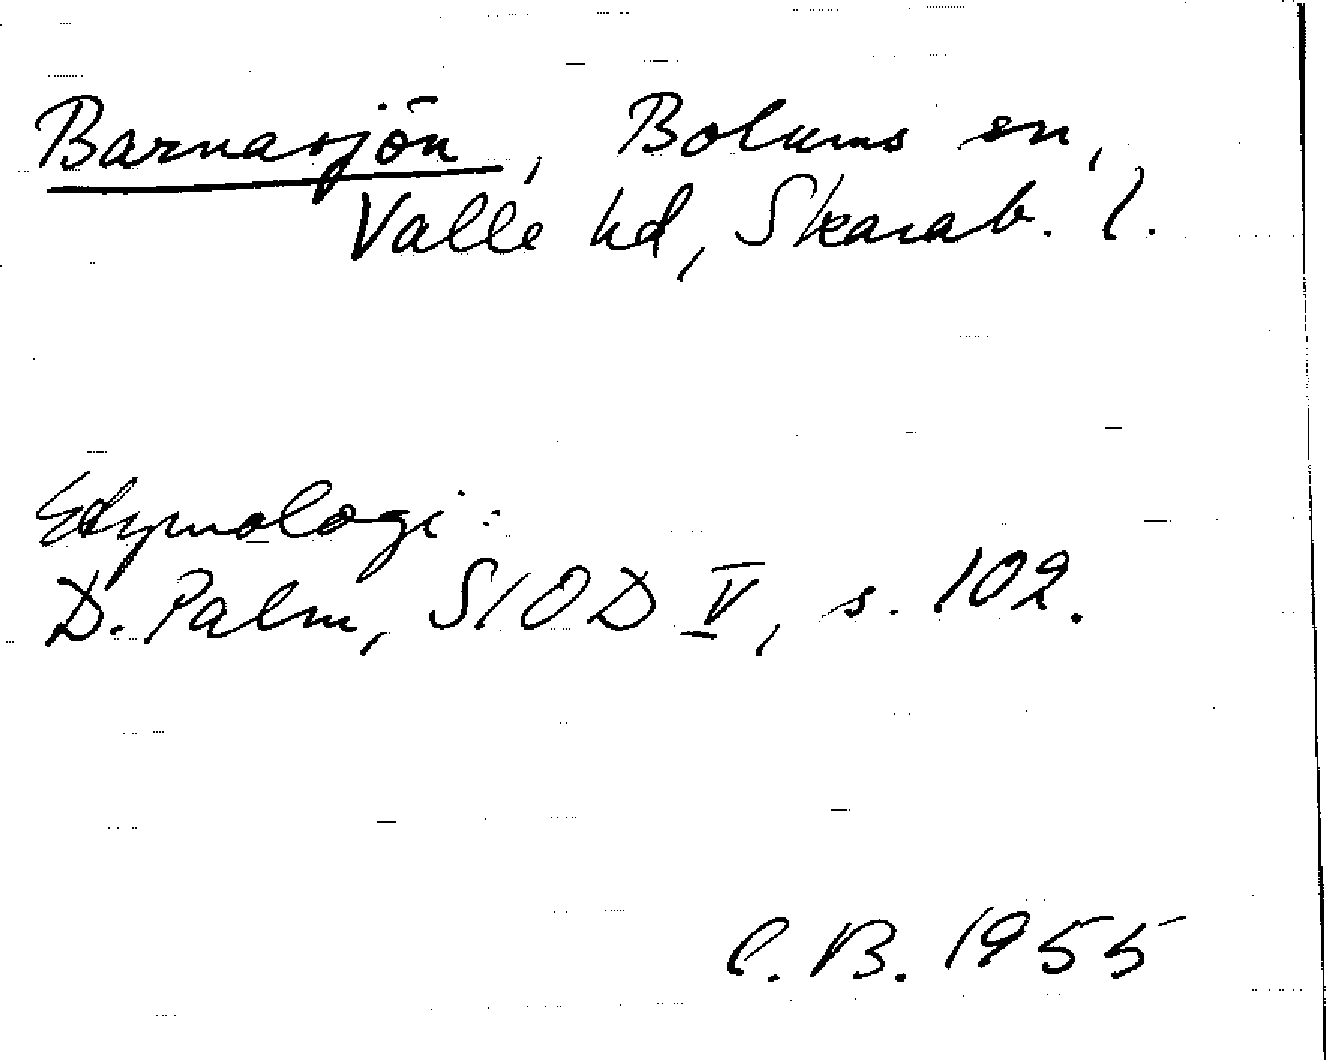 Barnasjön, Bolums sn,
Valle hd, Skarab. l.
Etymologi:
D. Palm, SIOD V, s. 102.
C.B. 1955